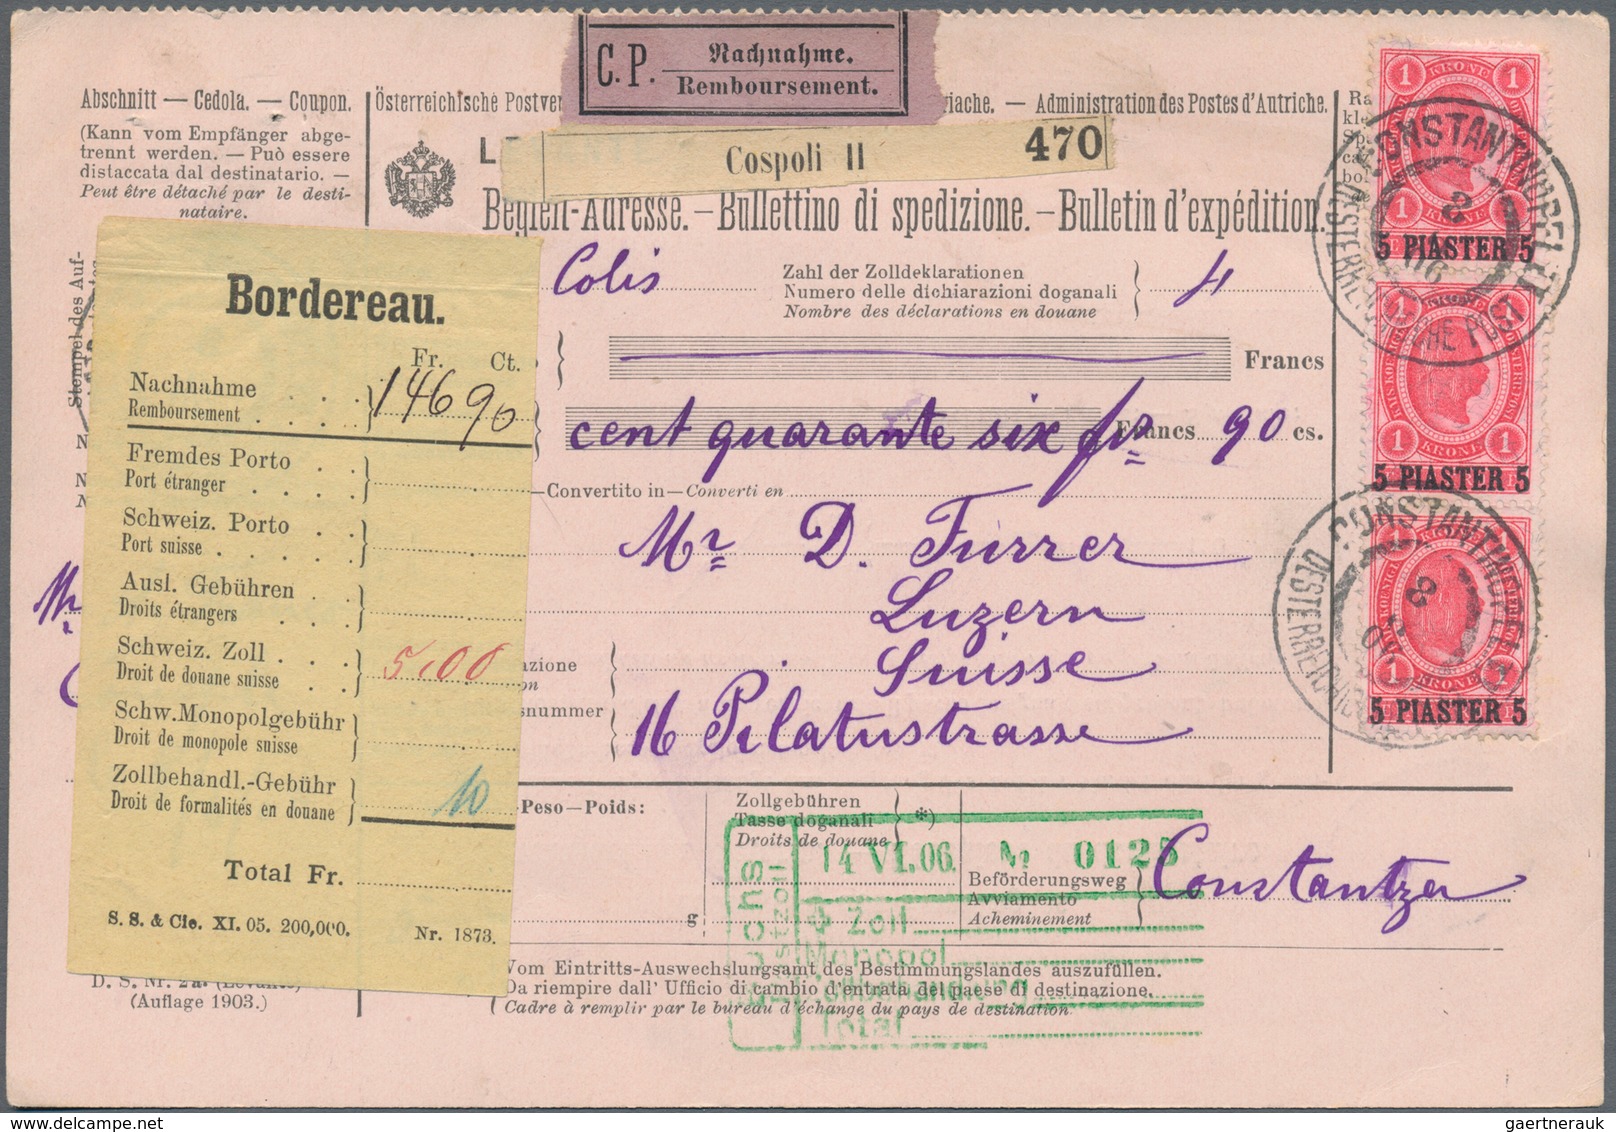 C. P.
Nachnahme.
Remboursement.
Abschnitt — Cedola. — Coupon.
(Kann vom Empfänger abge-
trennt werden. — Può essere
distaccata dal destinatario. —
Peut être détaché par le desti-
nataire.
Österreichische Postver
iache. — Administration des Postes d'Autriche.
Cospoli II
470
Begleit-Adresse. — Bullettino di spedizione. — Bulletin d'expédition.
Stempel des Auf-
Colis
Zahl der Zolldeklarationen
Numero delle dichiarazioni doganali
Nombre des déclarations en douane
4
Francs
cent quarante six frs Francs 90 cs.
— Convertito in — Converti en
Mr. D. Furrer
Luzern
Suisse
16 Pilatusstrasse
azione
on
snummer
Bordereau.
Fr. Ct.
Nachnahme
Remboursement
146 90
Fremdes Porto
Port étranger
Schweiz. Porto
Port suisse
Ausl. Gebühren
Droits étrangers
Schweiz. Zoll
Droit de douane suisse
5.00
Schw. Monopolgebühr
Droit de monopole suisse
Zollbehandl.-Gebühr
Droit de formalités en douane
10
Total Fr.
S. S. & Cie. XI. 05. 200,000.
Nr. 1873.
Peso — Poids:
g
Zollgebühren
Tasse doganali
Droits de douane
*)
Beförderungsweg
Avviamento
Acheminement
Constantza
14 VI.06. № 0125
Zoll
Monopol
Zollbehandlung
Total
Vom Eintritts-Auswechslungsamt des Bestimmungslandes auszufüllen.
Da riempire dall' Ufficio di cambio d'entrata del paese di destinazione.
Cadre à remplir par le bureau d'échange du pays de destination.
D. S. Nr. 2a. (Levante)
(Auflage 1903.)
1 KRONE 1
5 PIASTER 5
1 KRONE 1
5 PIASTER 5
1 KRONE 1
5 PIASTER 5
CONSTANTINOPEL II
OESTERREICHISCHE POST
CONSTANTINOPEL
gaertnerauk